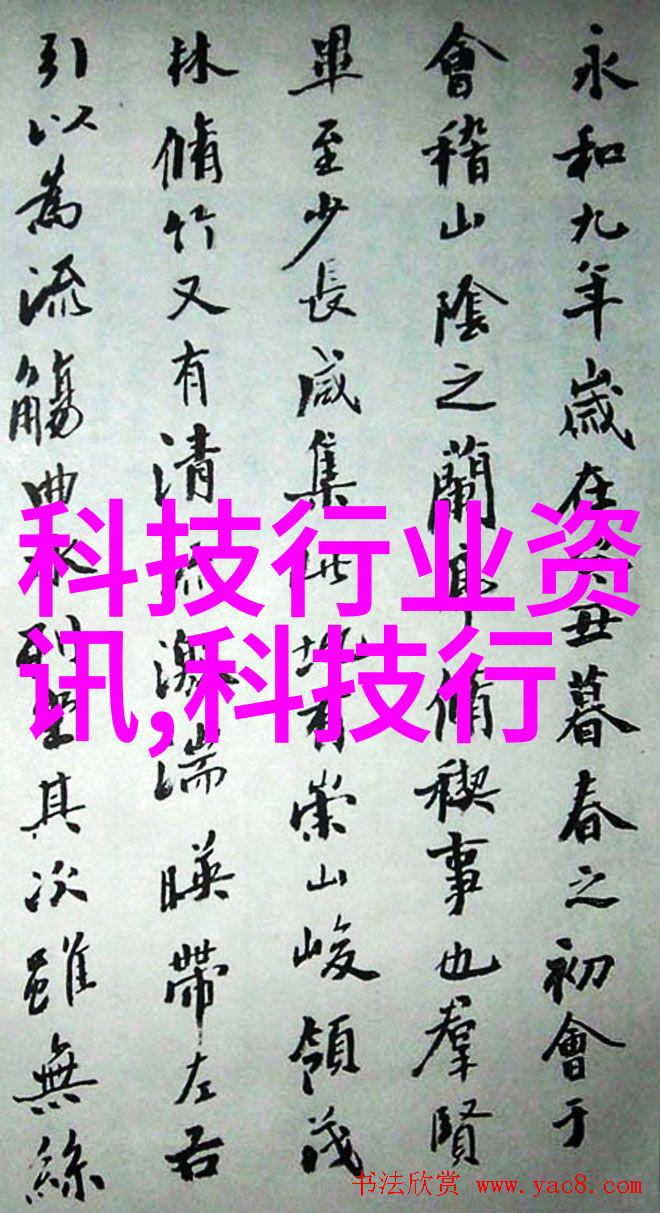 永和九年歲在癸丑暮春之初會于
會稽山陰之蘭亭脩稧事也羣賢
畢至少長咸集此地有崇山峻領茂
林脩竹又有清流激湍暎帶左右
引以為流觴曲水列坐其次雖無絲
科技行业资
讯,科技行
书法欣赏 www.yac8.com